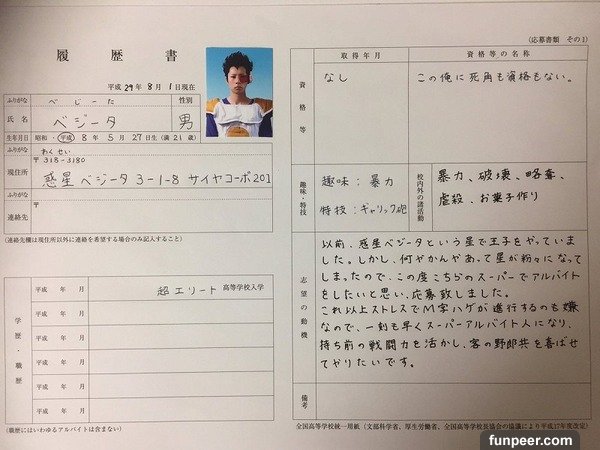 (応募書類 その1)
履歴書
平成 29年 8月 1日現在
ふりがな べじーた 性別
氏名 ベジータ 男
生年月日 昭和・平成 8年 5月 27日生 (満 21歳)
ふりがな わくせい
〒318-3180
現住所 惑星 ベジータ 3-1-8 サイヤコーポ201
ふりがな
〒
連絡先
(連絡先欄は現住所以外に連絡を希望する場合のみ記入すること)
学歴・職歴
平成 年 月 超エリート 高等学校入学
平成 年 月
平成 年 月
平成 年 月
平成 年 月
平成 年 月
(職歴にはいわゆるアルバイトは含まない)
資格等
取得年月 資格等の名称
なし この俺に死角も資格もない。
趣味・特技
趣味:暴力
特技:ギャリック砲
校内外の諸活動
暴力、破壊、略奪、
虐殺、お菓子作り
志望の動機
以前、惑星ベジータという星で王子をやっていま
した。しかし、何やかんやあって星が粉々になって
しまったので、この度こちらのスーパーでアルバイト
をしたいと思い、応募致しました。
これ以上ストレスでM字ハゲが進行するのも嫌
なので、一刻も早くスーパーアルバイト人になり、
持ち前の戦闘力を活かし、客の野郎共を喜ばせ
てやりたいです。
備考
全国高等学校統一用紙(文部科学省、厚生労働省、全国高等学校長協会の協議により平成17年度改定)
funpeer.com